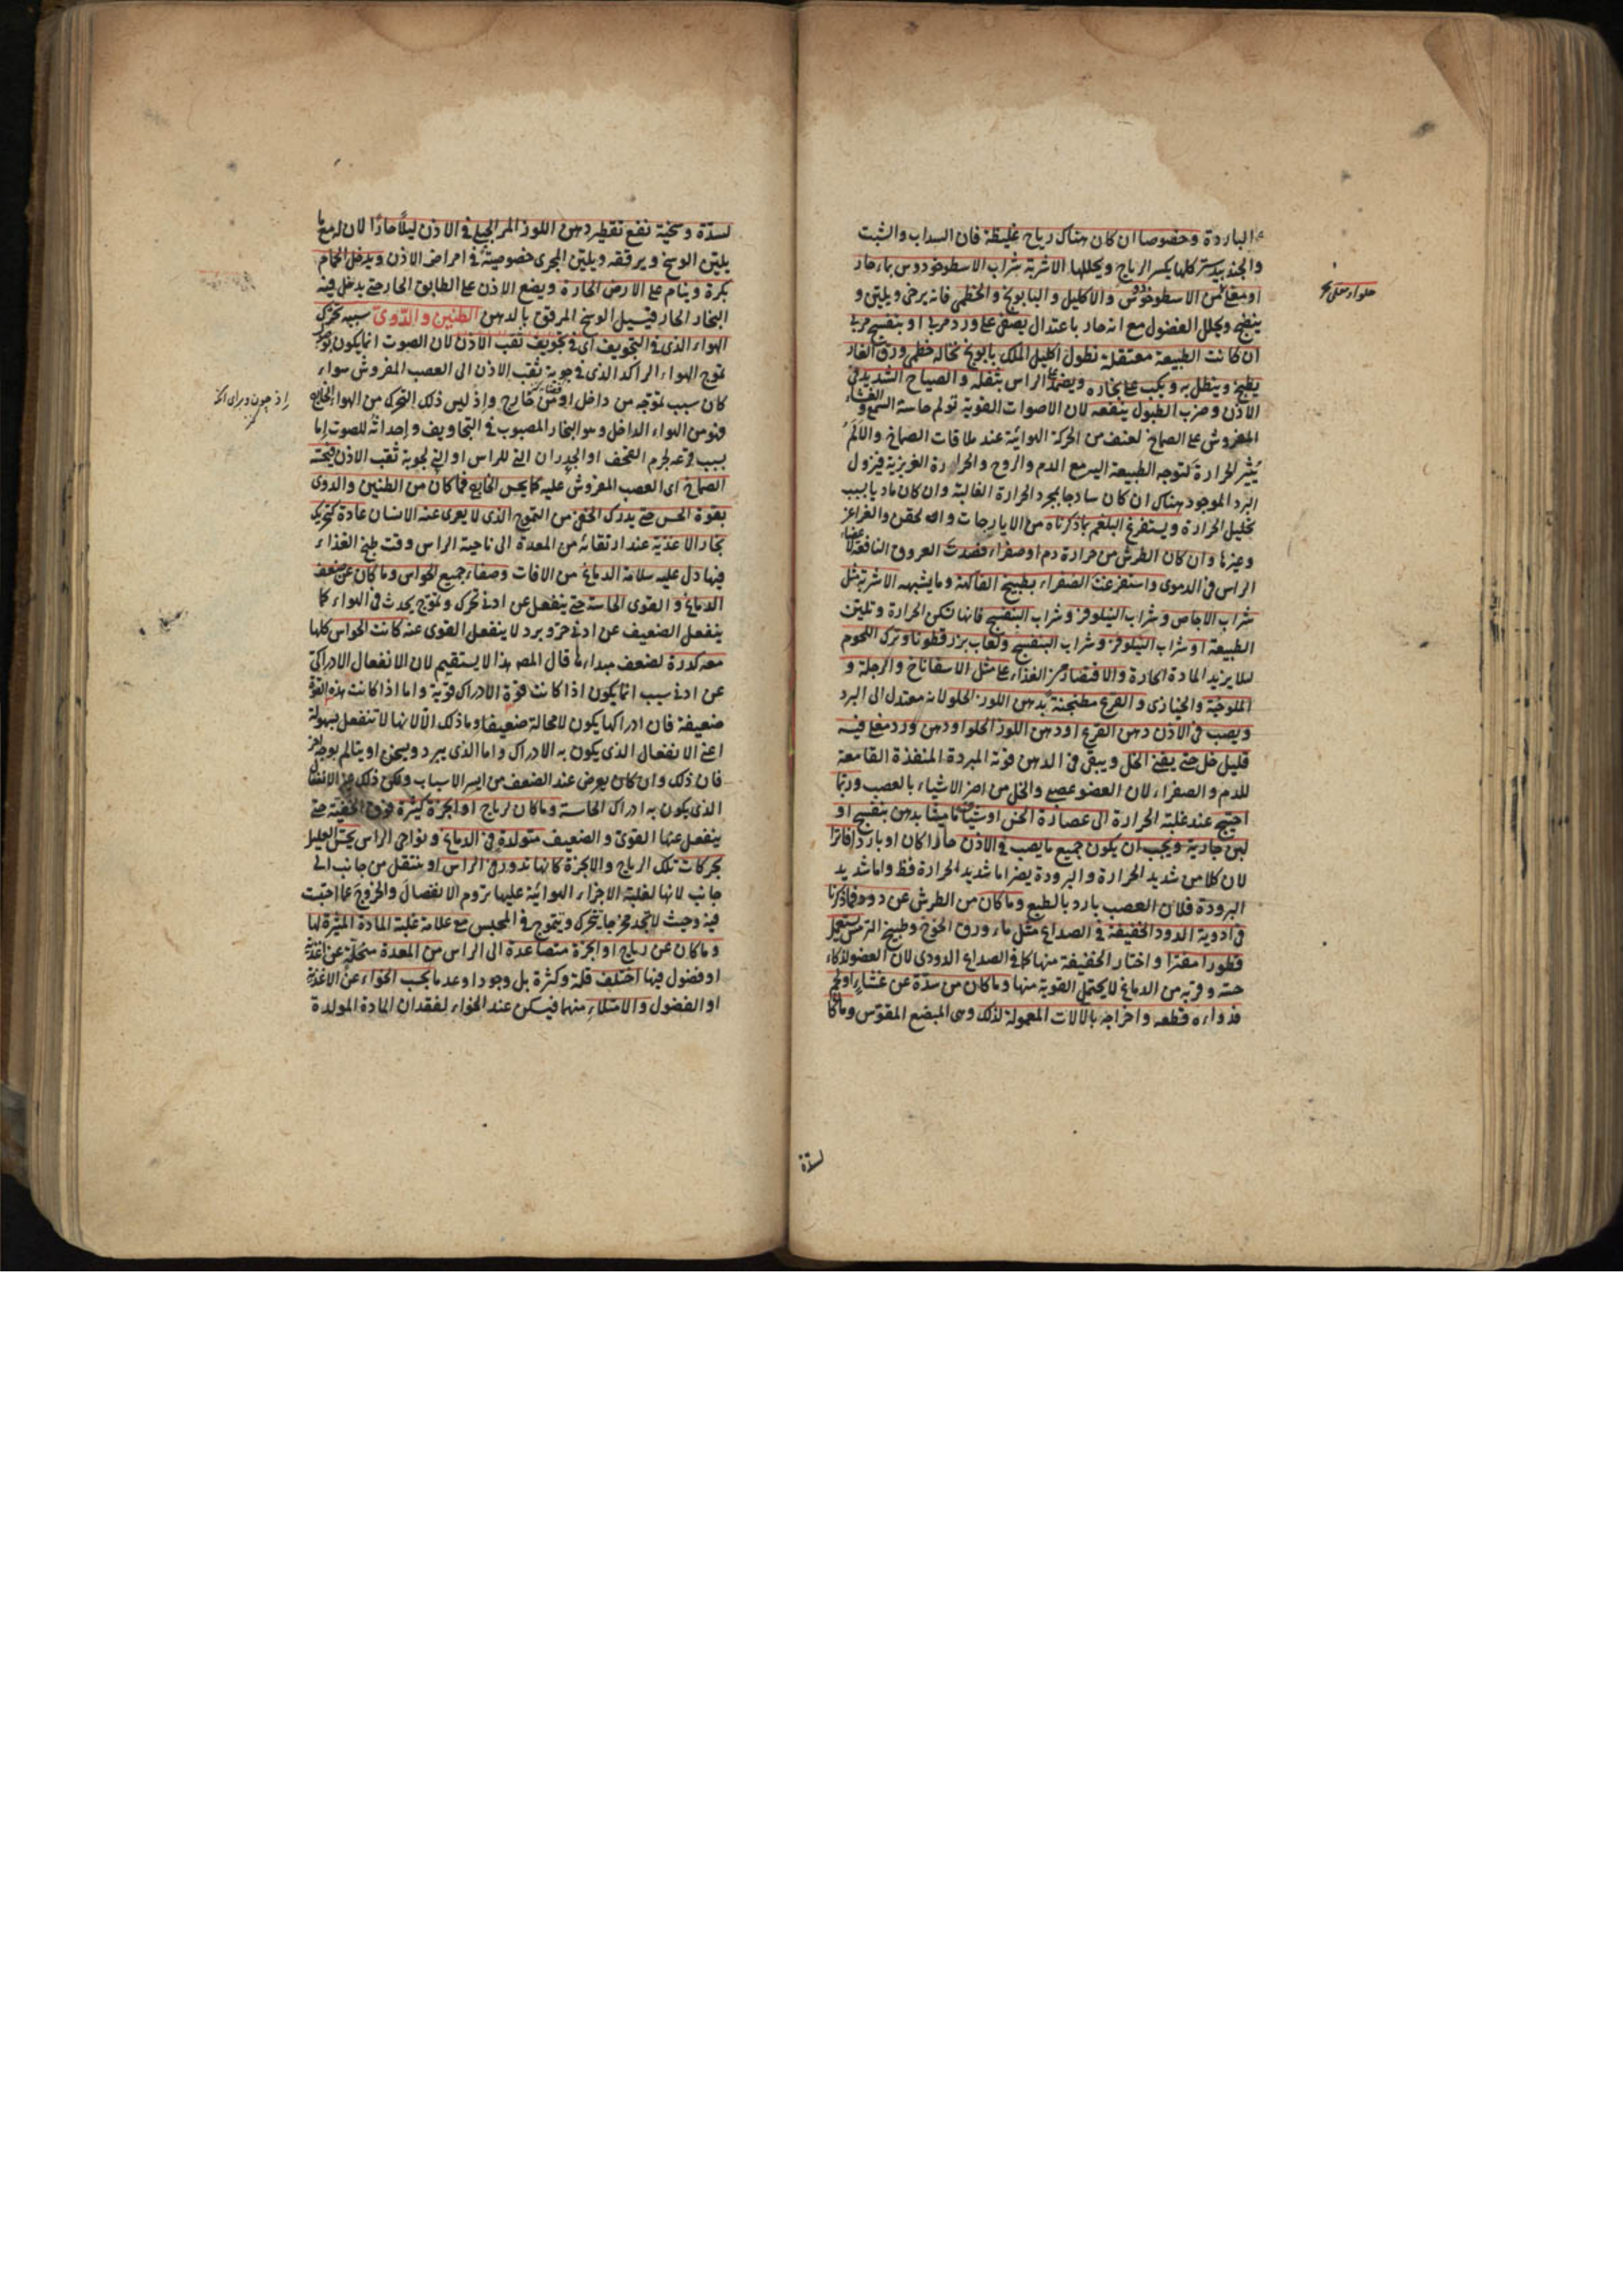 الباردة وخصوصا ان كان هناك رياح غليظة فان السداب والشبت
والجندبيدستر كلها يكسر الرياح ويحللها الاشربة شراب الاسطوخودوس بماء حار
او مغلى من الاسطوخودوس والاكليل والبابونج والخطمى فانه يرخى ويلين و
ينضج ويحلل الفضول مع انه حار باعتدال يصفى على ورد مربا او بنفسج مربا
ان كانت الطبيعة معتقلة نطول اكليل الملك بابونج نخالة خطمى ورق الغار
يطبخ وينطل به ويكب على بخاره ويضمد الراس بثفله والصياح الشديد فى
الاذن وضرب الطبول ينفعه لان الاصوات القوية تولم حاسة السمع والغشاء
المفروش على الصماخ لعنف من الحركة الهوائية عند ملاقات الصماخ والالم
يثير الحرارة لتوجه الطبيعة اليه مع الدم والروح والحرارة الغريزية فيزول
البرد الموجود هناك ان كان ساذجا بمجرد الحرارة الغالبة وان كان ماديا بسبب
تحليل الحرارة ويستفرغ البلغم بما ذكرناه من الايارجات والحقن والغراغر
وغيرها وان كان الطرش من حرارة دم او صفراء فصدت العروق النافعة
الراس فى الدموى واستفرغت الصفراء بطبيخ الفاكهة وما يشبهه الاشربة مثل
شراب الاجاص وشراب النيلوفر وشراب البنفسج فانها تسكن الحرارة وتلين
الطبيعة او شراب النيلوفر وشراب البنفسج ولعاب بزر قطونا وترك اللحوم
لئلا يزيد المادة الحارة والاقتصار من الغذاء على مثل الاسفاناخ والرجلة و
الملوخية والخبازى والقرع مطجنة بدهن اللوز الحلو لانه معتدل الى البرد
ويصب فى الاذن دهن القرع او دهن اللوز الحلو او دهن ورد مغلى فيه
قليل خل حتى يفنى الخل ويبقى فى الدهن قوته المبردة المنفذة القامعة
للدم والصفراء لان العضو عصبى والخل من اضر الاشياء بالعصب وربما
احتيج عند غلبة الحرارة الى عصارة الخس او شياف ماميثا بدهن بنفسج او
لبن جارية ويجب ان يكون جميع ما يصب فى الاذن حارا كان او باردا فاترا
لان كلا من شديد الحرارة والبرودة يضر اما شديد الحرارة فظ واما شديد
البرودة فلان العصب بارد بالطبع وما كان من الطرش عن دود فما ذكرنا
فى ادوية الدود الخفيفة فى الصداع مثل ماء ورق الخوخ وطبيخ الترمس يستعمل
قطورا مفترا واختار الخفيفة منها كما فى الصداع الدودى لان العضو لذكاء
حسه وقربه من الدماغ لا يحتمل القوية منها وما كان من سدة عن غشاء او لحم
فدواءه قطعه واخراجه بالالات المعمولة لذلك وهى المبضع المقوس وما كان
لسدة
لسدة وسخية نفع تقطير دهن اللوز المر الجبلى فى الاذن ليلا حارا لان له مع ما
يلين الوسخ ويرققه ويلين المجرى خصوصية فى امراض الاذن ويدخل الحمام
بكرة وينام على الارض الحارة ويضع الاذن على الطابق الحار حتى يدخل فيه
البخار الحار فيسيل الوسخ المرقق بالدهن الطنين والدوى سببه تحرك
الهواء الذى فى التجويف اى فى تجويف ثقب الاذن لان الصوت انما يكون بوصول
تموج الهواء الراكد الذى فى جوبة ثقب الاذن الى العصب المفروش سواء
كان سبب تموجه من داخل او من خارج واذ ليس ذلك التحرك من الهواء الخارج
فهو من الهواء الداخل وهو البخار المصبوب فى التجاويف واحداثه للصوت اما
بسبب قرعه لجرم القحف او الجدران التى للراس او التى لجوبة ثقب الاذن فيحسه
الصماخ اى العصب المفروش عليه كما يحس الخارج فما كان من الطنين والدوى
بقوة الحس حتى يدرك الخفى من التموج الذى لا يعرى عنه الانسان عادة كتحريك
بخار الاغذية عند ارتقائه من المعدة الى ناحية الراس وقت طبخ الغذاء
فيها دل عليه سلامة الدماغ من الافات وصفاء جميع الحواس وما كان عن ضعف
الدماغ والقوى الحاسة حتى ينفعل عن ادنى تحرك وتموج يحدث فى الهواء كما
ينفعل الضعيف عن ادنى حر وبرد لا ينفعل القوى عنه كانت الحواس كلها
معه كدرة لضعف مبداءها قال المص هذا لا يستقيم لان الانفعال الادراكى
عن ادنى سبب انما يكون اذا كانت قوة الادراك قوية واما اذا كانت هذه القوة
ضعيفة فان ادراكها يكون لا محالة ضعيفا وما ذلك الا لانها لا تنفعل بسهولة
اعنى الانفعال الذى يكون به الادراك واما الذى يبرد ويسخن او يتالم بوجه اخر
فان ذلك وان كان يعرض عند الضعف من ايسر الاسباب ولكن ذلك غير الانفعال
الذى يكون به ادراك الحاسة وما كان لرياح او ابخرة كثيرة فوق الخفية حتى
ينفعل عنها القوى والضعيف متولدة فى الدماغ ونواحى الراس يحس العليل
بحركات تلك الرياح والابخرة كانها تدور فى الراس او تنتقل من جانب الى
جانب لانها لغلبة الاجزاء الهوائية عليها تروم الانفصال والخروج عما احتبست
فيه وحيث لا تجد مخرجا يتحرك ويتموج فى المحبس مع علامة غلبة المادة المثيرة لها
وما كان عن رياح او ابخرة متصاعدة الى الراس من المعدة متحللة عن اغذية
او فضول فيها اختلف قلة وكثرة بل وجودا وعدما بحسب الخواء عن الاغذية
او الفضول والامتلاء منهما فيسكن عند الخواء لفقدان المادة المولدة